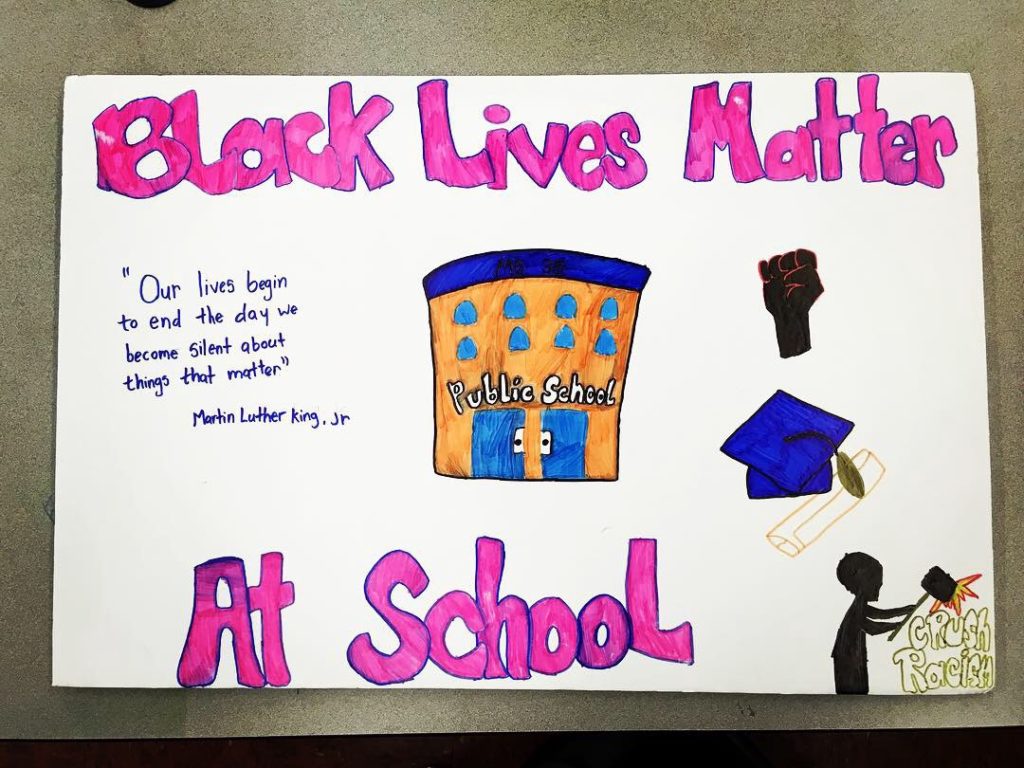 Black Lives Matter
"Our lives begin
to end the day we
become silent about
things that matter"
Martin Luther King, Jr
Public School
At School
Crush
Racism